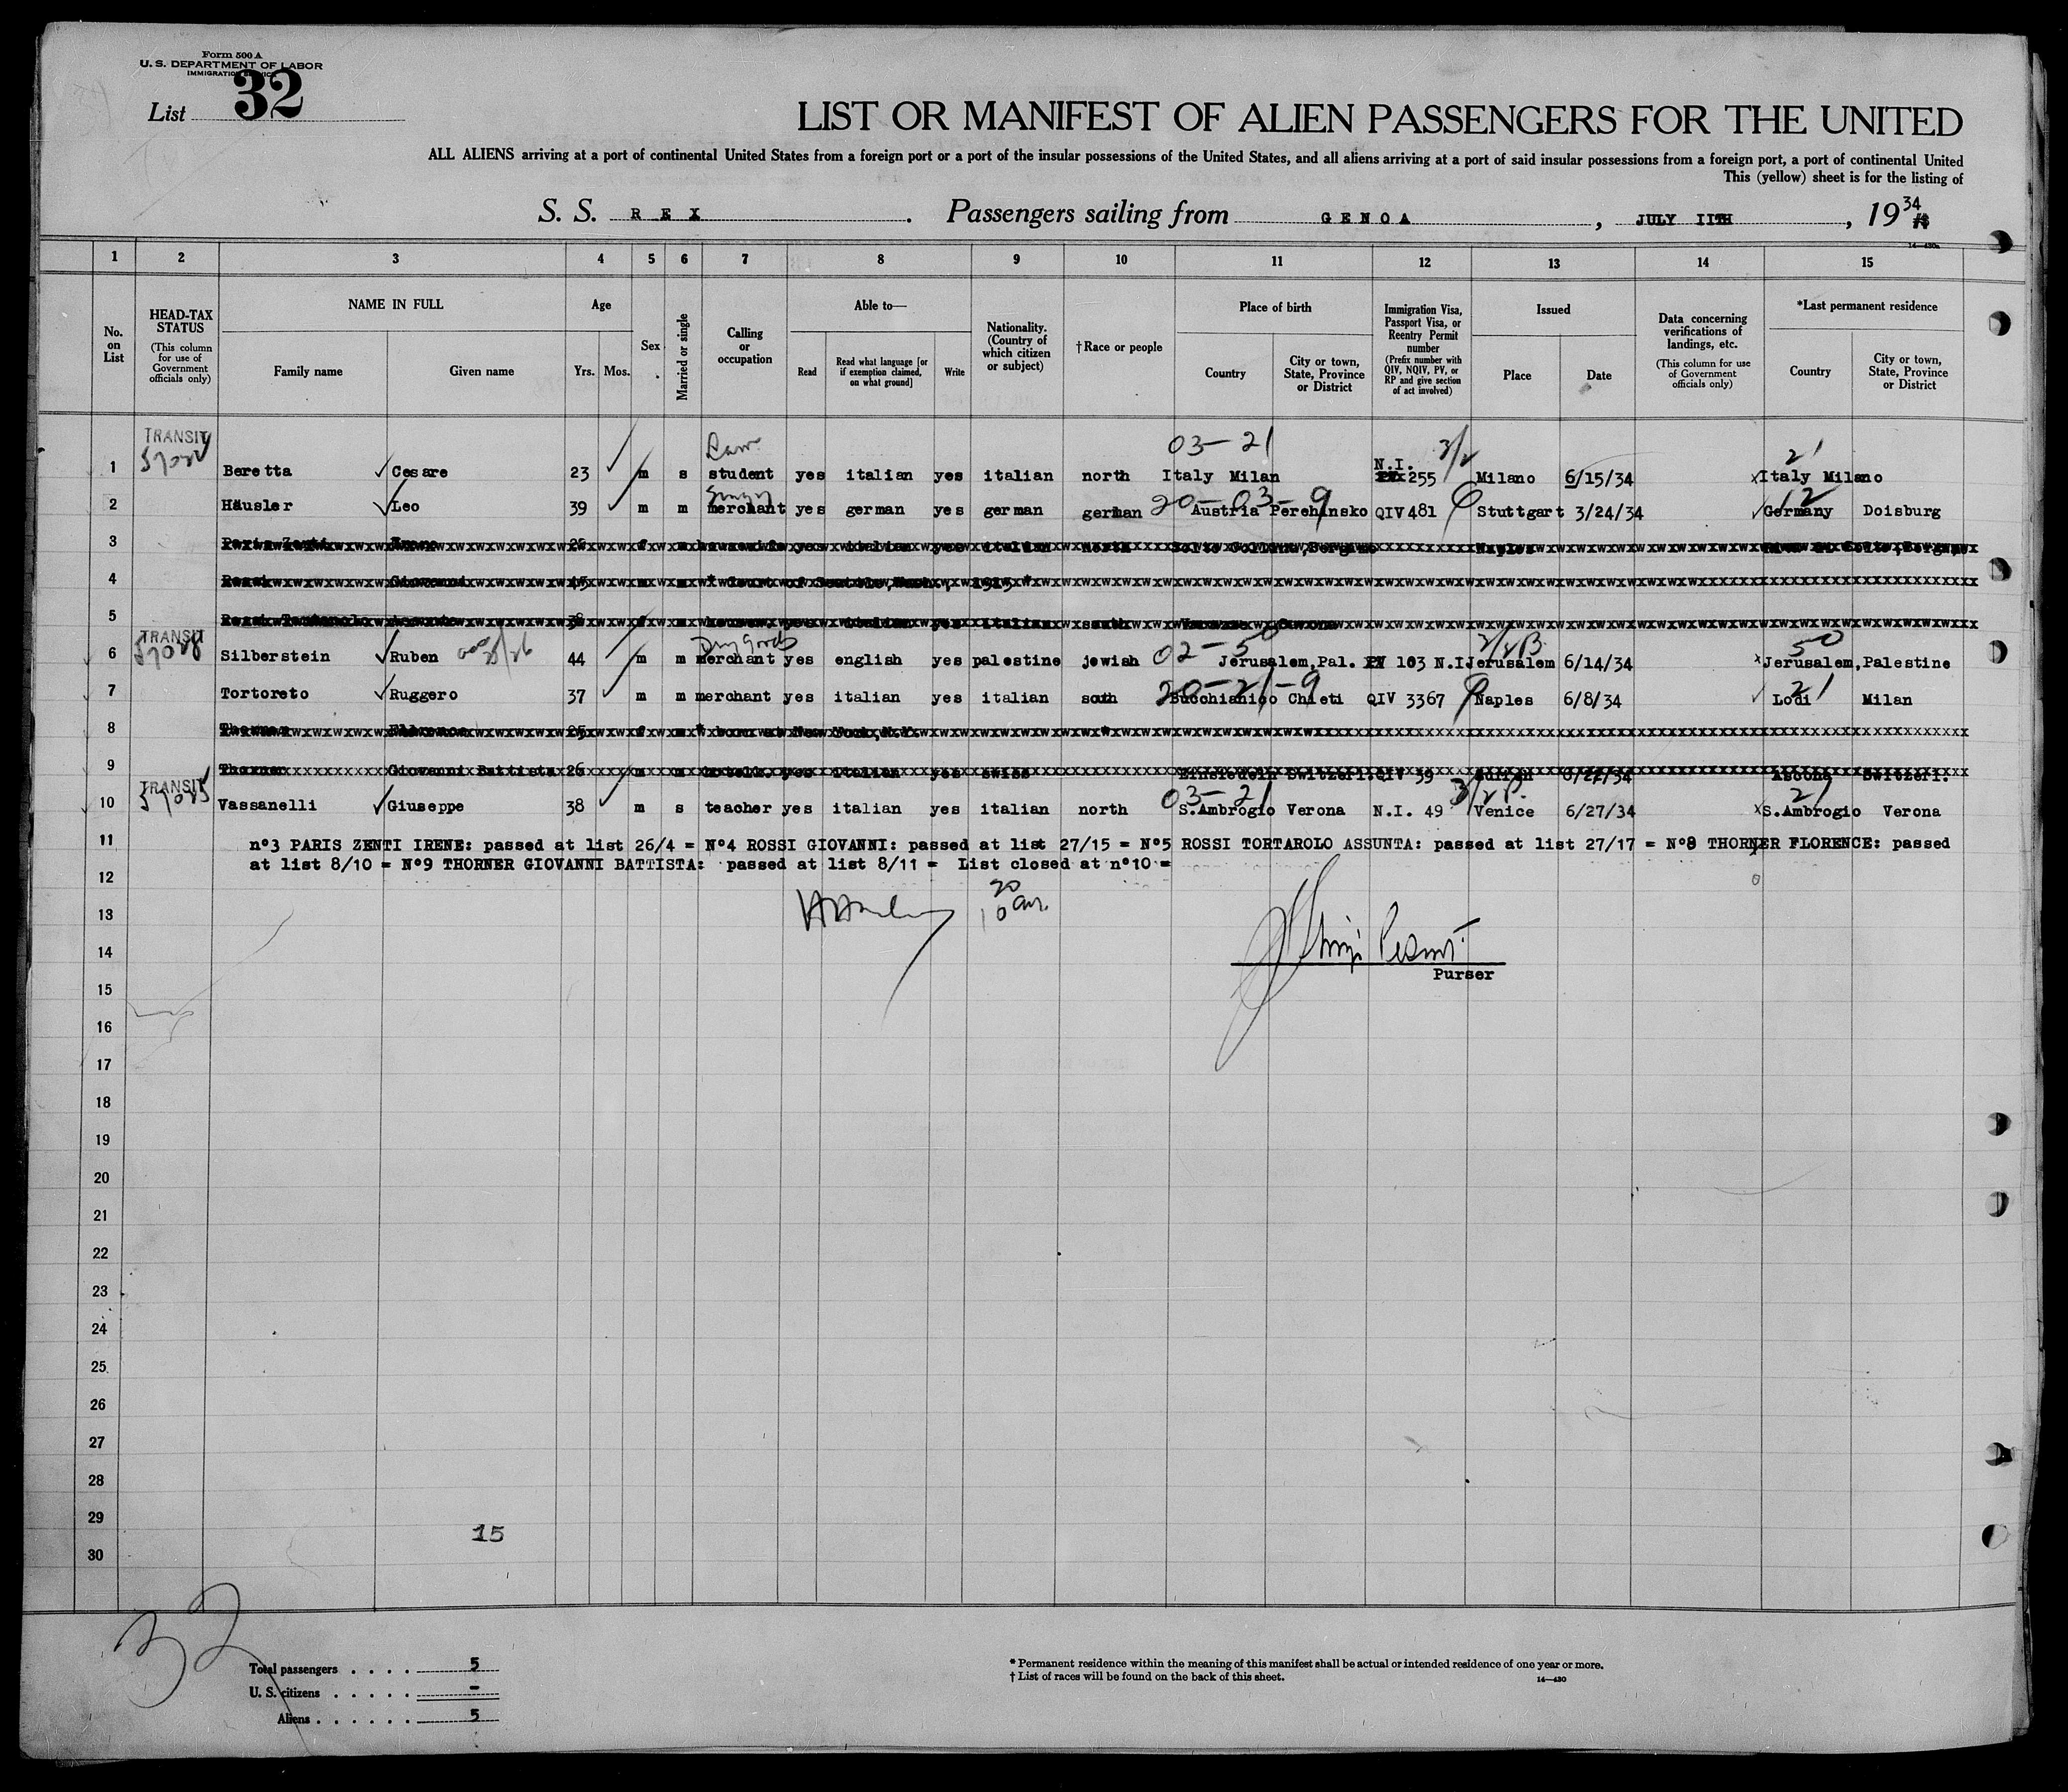 Form 500 A
U. S. DEPARTMENT OF LABOR
IMMIGRATION SERVICE
List 32
LIST OR MANIFEST OF ALIEN PASSENGERS FOR THE UNITED
ALL ALIENS arriving at a port of continental United States from a foreign port or a port of the insular possessions of the United States, and all aliens arriving at a port of said insular possessions from a foreign port, a port of continental United
This (yellow) sheet is for the listing of
S. S. REX. Passengers sailing from GENOA, JULY IITH, 19 34
14—430a
1 2 3 4 5 6 7 8 9 10 11 12 13 14 15
No. on List
HEAD-TAX STATUS (This column for use of Government officials only)
NAME IN FULL Family name Given name
Age Yrs. Mos.
Sex
Married or single
Calling or occupation
Able to— Read Read what language [or if exemption claimed, on what ground] Write
Nationality. (Country of which citizen or subject)
†Race or people
Place of birth Country City or town, State, Province or District
Immigration Visa, Passport Visa, or Reentry Permit number (Prefix number with QIV, NQIV, PV, or RP and give section of act involved)
Issued Place Date
Data concerning verifications of landings, etc. (This column for use of Government officials only)
*Last permanent residence Country City or town, State, Province or District
TRANSIT 03-21 3/2 21
1 Beretta Cesare 23 m s student yes italian yes italian north Italy Milan N.I. 255 Milano 6/15/34 Italy Milano
20-03-9 12
2 Häusler Leo 39 m m merchant yes german yes german german Austria Perehinsko QIV 481 Stuttgart 3/24/34 Germany Doisburg
3 Paris Zenti
4 Rossi Giovanni 45 m m * Court of Seattle, Wash., 1915 *
5 Rossi Tortarolo Assunta
TRANSIT Dry goods 02-50 50
6 Silberstein Ruben 44 m m merchant yes english yes palestine jewish Jerusalem, Pal. PV 103 N.I. Jerusalem 6/14/34 Jerusalem, Palestine
20-21-9 21
7 Tortoreto Ruggero 37 m m merchant yes italian yes italian south Bucchianico Chieti QIV 3367 Naples 6/8/34 Lodi Milan
8 Thorner Florence 25 f m * born at New York, N.Y. *
9 Thorner Giovanni Battista 26 m m yes italian yes swiss Einsiedeln Switzerl. QIV 39 Ascona Switzerl.
TRANSIT 03-21 21
10 Vassanelli Giuseppe 38 m s teacher yes italian yes italian north S.Ambrogio Verona N.I. 49 Venice 6/27/34 S.Ambrogio Verona
11 n°3 PARIS ZENTI IRENE: passed at list 26/4 = N°4 ROSSI GIOVANNI: passed at list 27/15 = N°5 ROSSI TORTAROLO ASSUNTA: passed at list 27/17 = N°8 THORNER FLORENCE: passed
at list 8/10 = N°9 THORNER GIOVANNI BATTISTA: passed at list 8/11 = List closed at n°10 =
12
13
14
Purser
15
16
17
18
19
20
21
22
23
24
25
26
27
28
29 15
30
32
Total passengers . . . . 5
U. S. citizens . . . . . -
Aliens . . . . . . 5
* Permanent residence within the meaning of this manifest shall be actual or intended residence of one year or more.
† List of races will be found on the back of this sheet. 14—430